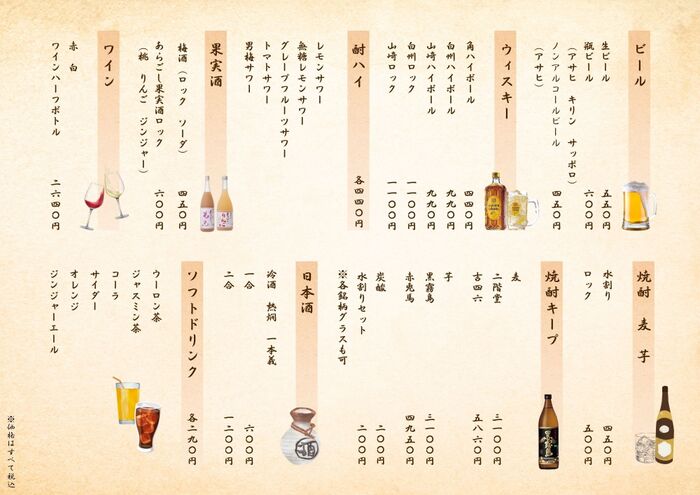 ビール
生ビール 五五〇円
瓶ビール 六〇〇円
(アサヒ キリン サッポロ)
ノンアルコールビール 四五〇円
(アサヒ)
ウィスキー
角ハイボール 四四〇円
白州ハイボール 九九〇円
山崎ハイボール 九九〇円
白州ロック 一一〇〇円
山崎ロック 一一〇〇円
酎ハイ
各四四〇円
レモンサワー
無糖レモンサワー
グレープフルーツサワー
トマトサワー
男梅サワー
果実酒
梅酒(ロック ソーダ) 四五〇円
あらごし果実酒ロック 六〇〇円
(桃 りんご ジンジャー)
ワイン
赤 白
ワインハーフボトル 二六四〇円
焼酎 麦 芋
水割り 四五〇円
ロック 五〇〇円
焼酎キープ
麦
二階堂 三一〇〇円
吉四六 五八六〇円
芋
黒霧島 三一〇〇円
赤兎馬 四九五〇円
炭酸 二〇〇円
水割りセット 二〇〇円
※各銘柄グラスも可
日本酒
冷酒 熱燗 一本義
一合 六〇〇円
二合 一二〇〇円
ソフトドリンク
各二九〇円
ウーロン茶
ジャスミン茶
コーラ
サイダー
オレンジ
ジンジャーエール
※価格はすべて税込